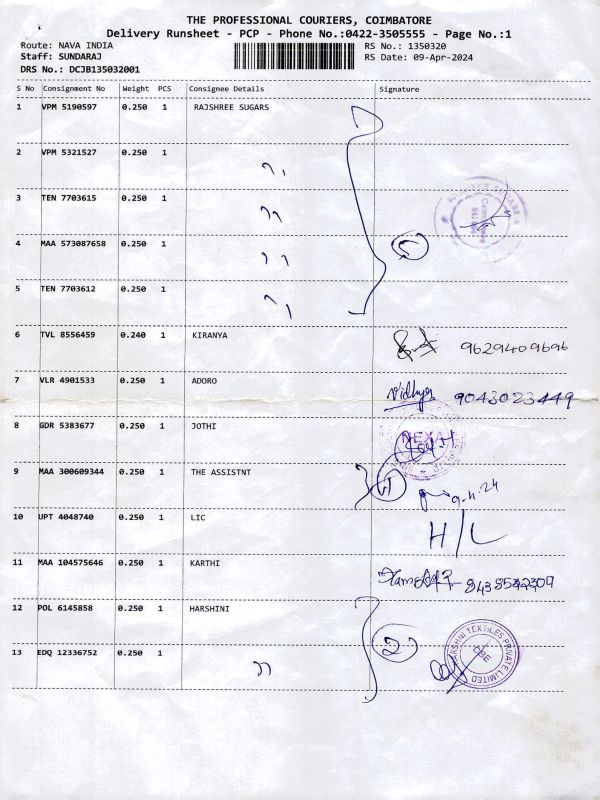 THE PROFESSIONAL COURIERS, COIMBATORE
Delivery Runsheet - PCP - Phone No.:0422-3505555 - Page No.:1
Route: NAVA INDIA RS No.: 1350320
Staff: SUNDARAJ RS Date: 09-Apr-2024
DRS No.: DCJB135032001
S No Consignment No Weight PCS Consignee Details Signature
1 VPM 5190597 0.250 1 RAJSHREE SUGARS
2 VPM 5321527 0.250 1 ,,
3 TEN 7703615 0.250 1 ,,
4 MAA 573087658 0.250 1 ,, 5
5 TEN 7703612 0.250 1 ,,
6 TVL 8556459 0.240 1 KIRANYA 9629409696
7 VLR 4901533 0.250 1 ADORO Vidhya 9043023449
8 GDR 5383677 0.250 1 JOTHI
9 MAA 300609344 0.250 1 THE ASSISTNT 9.4.24
10 UPT 4048740 0.250 1 LIC H/L
11 MAA 104575646 0.250 1 KARTHI
12 POL 6145858 0.250 1 HARSHINI
2
13 EDQ 12336752 0.250 1 ,,
TEXTILES PRIVATE LIMITED
CBE